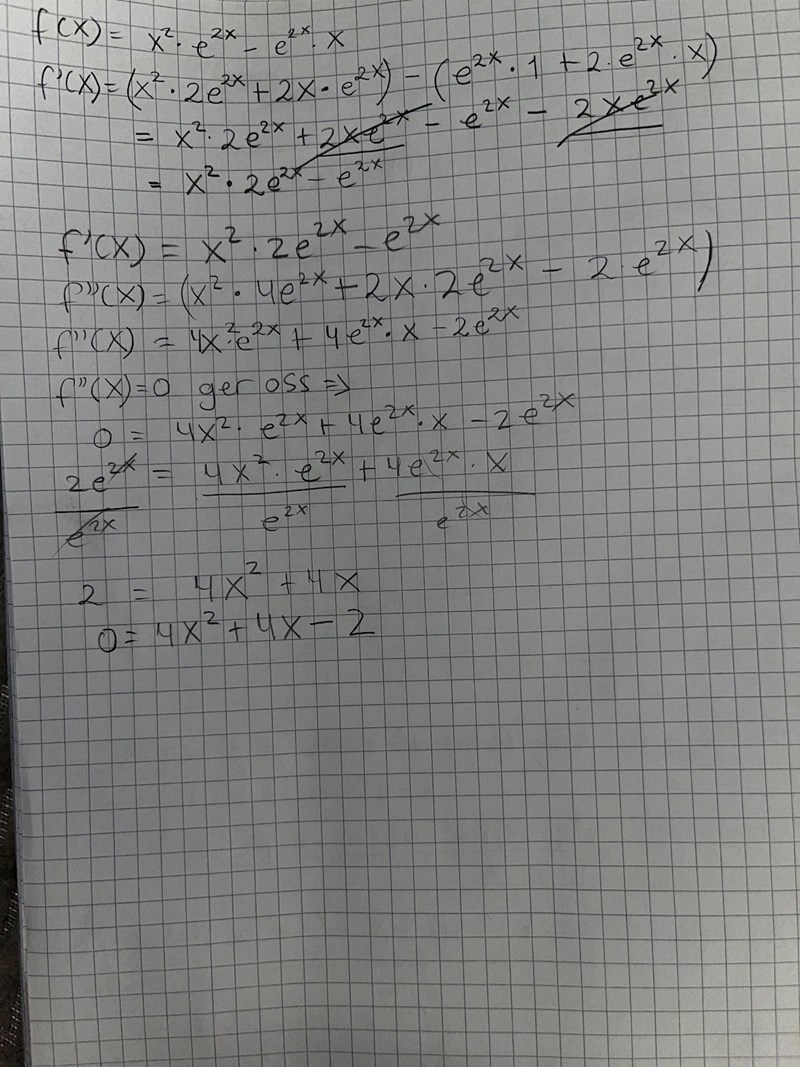 f(x) = x²·e²ˣ − e²ˣ·x
f'(x) = (x²·2e²ˣ + 2x·e²ˣ) − (e²ˣ·1 + 2·e²ˣ·x)
= x²·2e²ˣ + 2xe²ˣ − e²ˣ − 2xe²ˣ
= x²·2e²ˣ − e²ˣ
f'(x) = x²·2e²ˣ − e²ˣ
f''(x) = (x²·4e²ˣ + 2x·2e²ˣ − 2·e²ˣ)
f''(x) = 4x²·e²ˣ + 4e²ˣ·x − 2e²ˣ
f''(x)=0 ger oss ⇒
0 = 4x²·e²ˣ + 4e²ˣ·x − 2e²ˣ
2e²ˣ = 4x²·e²ˣ + 4e²ˣ·x
e²ˣ e²ˣ e²ˣ
2 = 4x² + 4x
0 = 4x² + 4x − 2